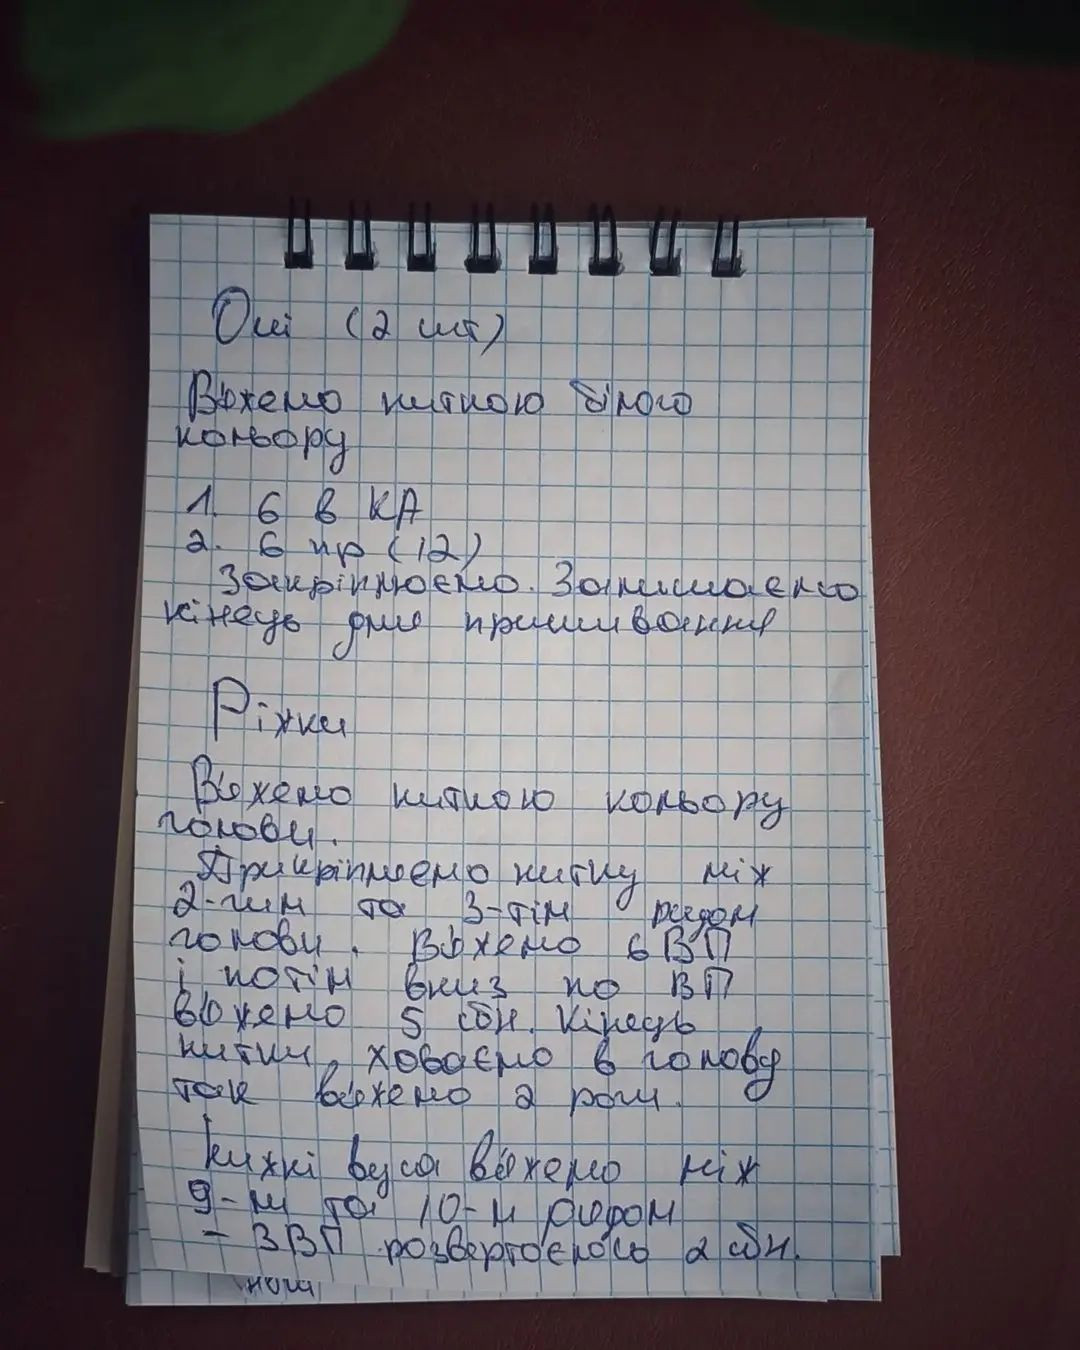 Очі (2 шт)
В'яжемо ниткою білого
кольору
1. 6 в КА
2. 6 пр (12)
Закріплюємо. Залишаємо
кінець для пришивання
Ріжки
В'яжемо ниткою кольору
голови.
Прикріплюємо нитку між
2-гим та 3-тім рядом
голови. В'яжемо 6 ВП
і потім вниз по ВП
в'яжемо 5 сбн. Кінець
нитки ховаємо в голову
так в'яжемо 2 роги.
Нижні вуса в'яжемо між
9-м та 10-м рядом
- 3ВП розвертаємось 2 сбн.